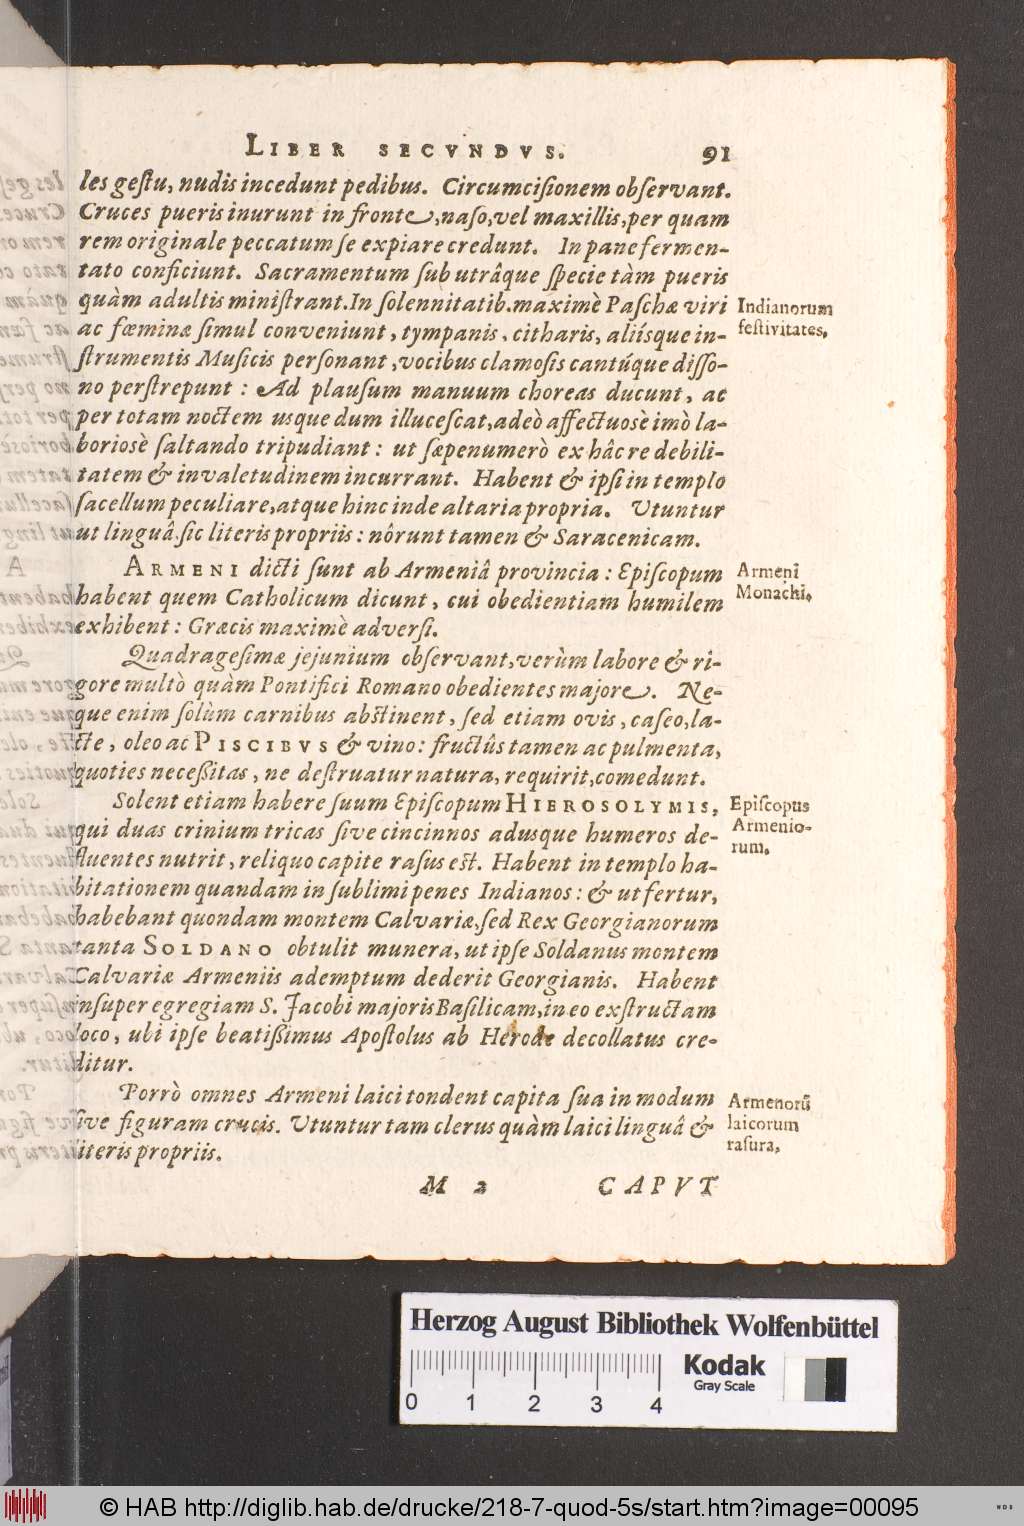 LIBER SECVNDVS. 91
les gestu, nudis incedunt pedibus. Circumcisionem observant.
Cruces pueris inurunt in fronte, naso, vel maxillis, per quam
rem originale peccatum se expiare credunt. In pane fermen-
tato conficiunt. Sacramentum sub utrâque specie tàm pueris
quàm adultis ministrant. In solennitatib. maximè Paschæ viri
ac fœminæ simul conveniunt, tympanis, citharis, aliísque in-
strumentis Musicis personant, vocibus clamosis cantúque disso-
no perstrepunt: Ad plausum manuum choreas ducunt, ac
per totam noctem usque dum illucescat, adeò affectuosè imò la-
boriosè saltando tripudiant: ut sæpenumerò ex hâc re debili-
tatem & invaletudinem incurrant. Habent & ipsi in templo
sacellum peculiare, atque hinc inde altaria propria. Utuntur
ut linguâ sic literis propriis: nôrunt tamen & Saracenicam.
Indianorum
festivitates.
ARMENI dicti sunt ab Armeniâ provincia: Episcopum
habent quem Catholicum dicunt, cui obedientiam humilem
exhibent: Græcis maximè adversi.
Armeni
Monachi.
Quadragesimæ jejunium observant, verùm labore & ri-
gore multò quàm Pontifici Romano obedientes majore. Ne-
que enim solùm carnibus abstinent, sed etiam ovis, caseo, la-
cte, oleo ac PISCIBVS & vino: fructûs tamen ac pulmenta,
quoties necessitas, ne destruatur natura, requirit, comedunt.
Solent etiam habere suum Episcopum HIEROSOLYMIS,
qui duas crinium tricas sive cincinnos adusque humeros de-
fluentes nutrit, reliquo capite rasus est. Habent in templo ha-
bitationem quandam in sublimi penes Indianos: & ut fertur,
habebant quondam montem Calvariæ, sed Rex Georgianorum
tanta SOLDANO obtulit munera, ut ipse Soldanus montem
Calvariæ Armeniis ademptum dederit Georgianis. Habent
insuper egregiam S. Jacobi majoris Basilicam, in eo exstructam
loco, ubi ipse beatissimus Apostolus ab Herode decollatus cre-
ditur.
Episcopus
Armenio-
rum.
Porrò omnes Armeni laici tondent capita sua in modum
sive figuram crucis. Utuntur tam clerus quàm laici linguâ &
literis propriis.
Armenorũ
laicorum
rasura.
M 2 CAPVT
Herzog August Bibliothek Wolfenbüttel
0 1 2 3 4
Kodak
Gray Scale
© HAB http://diglib.hab.de/drucke/218-7-quod-5s/start.htm?image=00095